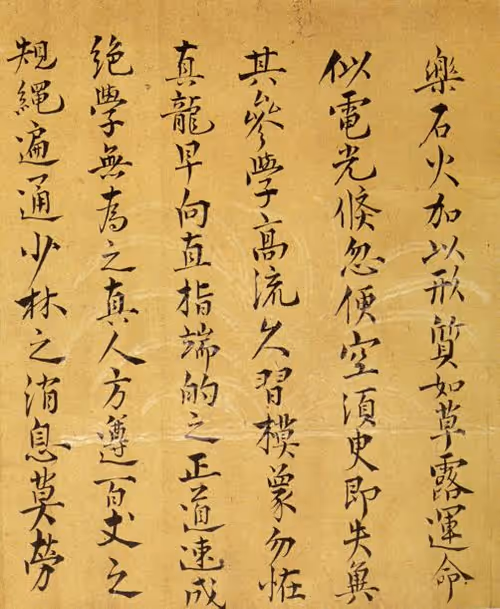 樂石火加以形質如草露運命
似電光倏忽便空須臾即失冀
其參學高流久習模象勿恠
真龍早向直指端的之正道速成
絶學無為之真人方遵百丈之
規繩遍通少林之消息莫勞